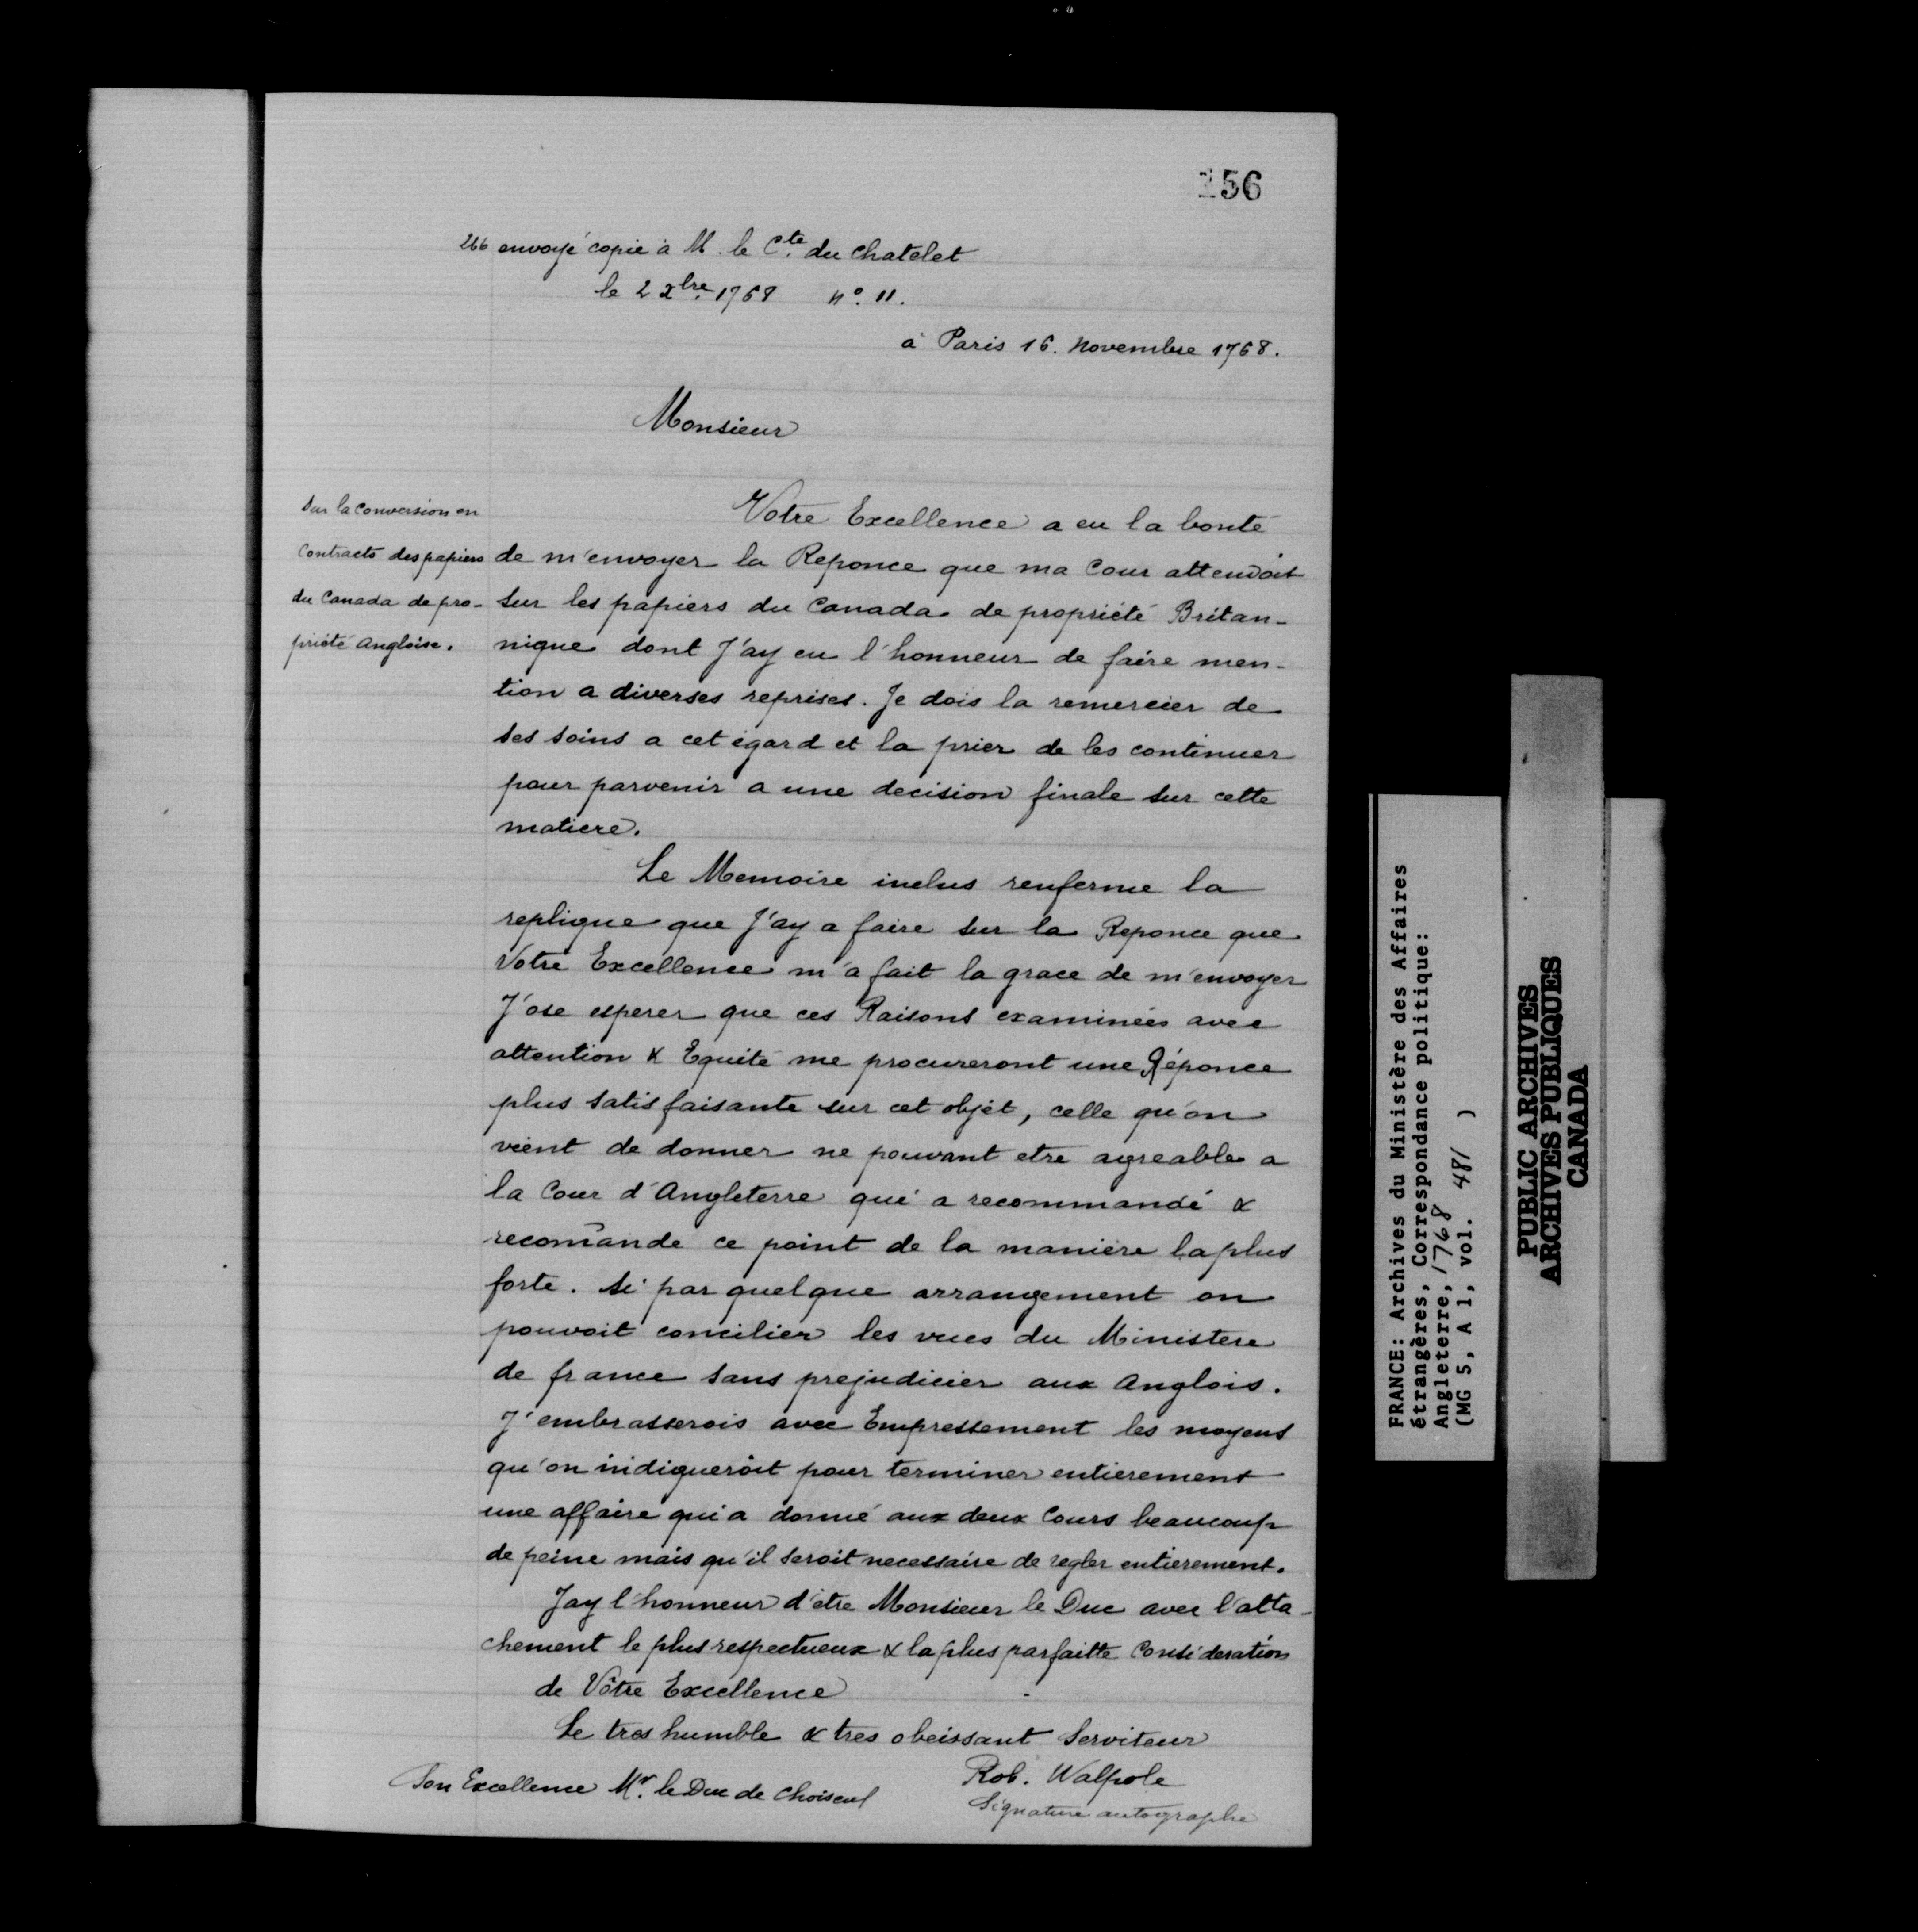 156
266 envoyé copie à M. le Cte. du Chatelet
le 2 xbre. 1768 n°. 11.
à Paris 16. Novembre 1768.
Monsieur
Sur la Conversion en
Contracts des papiers
du Canada de pro-
priété Angloise.
Votre Excellence a eu la bonté
de m'envoyer la Reponce que ma Cour attendoit
sur les papiers du Canada de propriété Britan-
nique dont J'ay eu l'honneur de faire men-
tion a diverses reprises. Je dois la remercier de
ses soins a cet égard et la prier de les continuer
pour parvenir a une decision finale sur cette
matiere.
Le Memoire inclus renferme la
replique que J'ay a faire sur la Reponce que
Votre Excellence m'a fait la grace de m'envoyer
J'ose esperer que ces Raisons examinées avec
attention & Equité me procureront une Réponce
plus satisfaisante sur cet objet, celle qu'on
vient de donner ne pouvant etre agreable a
la Cour d'Angleterre qui a recommandé &
recom̄ande ce point de la maniere la plus
forte. Si par quelque arrangement on
pouvoit concilier les vues du Ministere
de france sans prejudicier aux Anglois.
J'embrasserois avec Empressement les moyens
qu'on indiqueroit pour terminer entierement
une affaire qui a donné aux deux Cours beaucoup
de peine mais qu'il seroit necessaire de regler entierement.
Jay l'honneur d'etre Monsieur le Duc avec l'atta-
chement le plus respectueux & la plus parfaitte Consideration
de Vôtre Excellence
Le tres humble & tres obeissant Serviteur
Rob. Walpole
Son Excellence Mr. le Duc de Choiseul
Signature autographe
FRANCE: Archives du Ministère des Affaires
étrangères, Correspondance politique:
Angleterre, 1768
(MG 5, A 1, vol. 481 )
PUBLIC ARCHIVES
ARCHIVES PUBLIQUES
CANADA